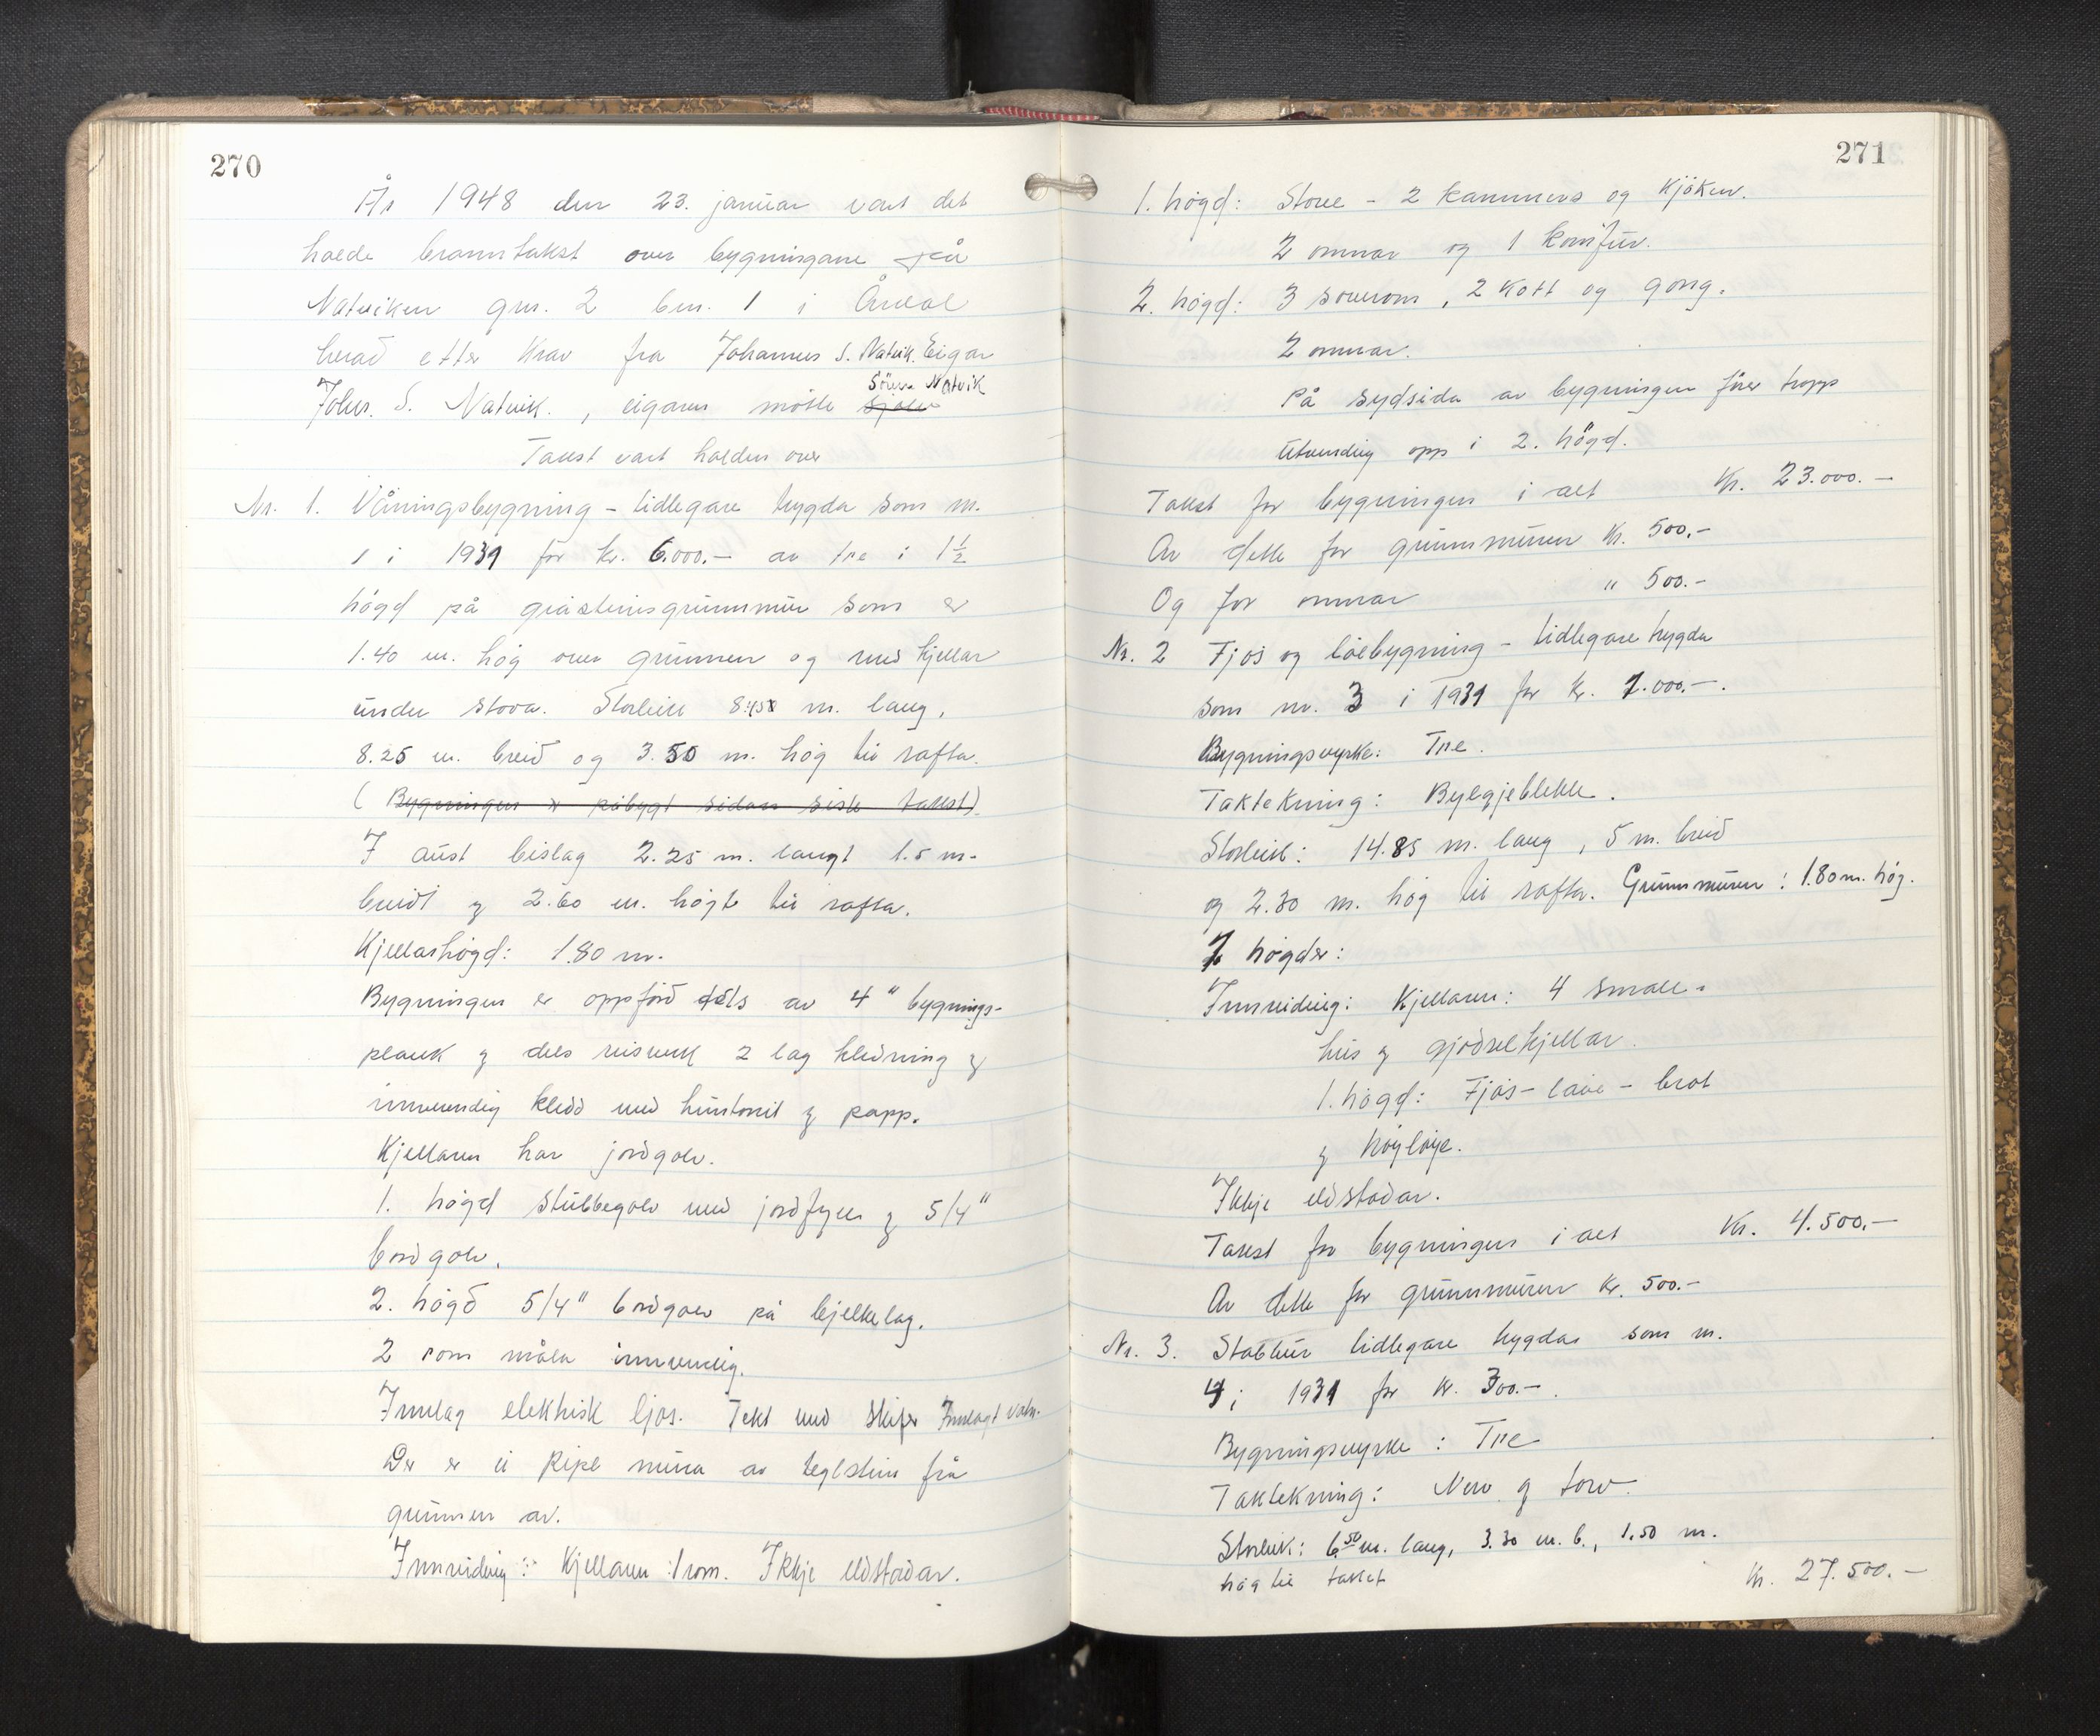 270
År 1948 den 23. januar vart det
halde branntakst over bygningane på
Natviken gnr. 2 bnr. 1 i Årdal
herad etter krav fra Johannes S. Natvik. Eigar
Søren Natvik
Johs. S. Natvik. , eigaren møtte sjølv
Takst vart halden over
Nr. 1. Våningsbygning – tidlegare trygda som nr.
1 i 1931 for kr. 6.000.– av tre i 1½
høgd på gråsteinsgrunnmur som er
1.40 m. høg over grunnen og med kjellar
under stova. Storleik m. lang,
8.25 m. breid og 3.50 m. høg til rafta.
(Bygningen er påbygt sidan siste takst)
I aust bislag 2.25 m. langt 1.5 m.
breidt og 2.60 m. høgt til rafta.
Kjellarhøgd: 1.80 m.
Bygningen er oppførd dels av 4" bygnings-
plank og dels reisverk 2 lag kledning og
innvendig kledd med huntonit og papp.
Kjellaren har jordgolv.
1. høgd stubbegolv med jordfyll og 5/4"
bordgolv.
2. høgd 5/4" bordgolv på bjelkelag.
2 rom måla innvendig.
Innlag elektrisk ljos. Tekt med skifer Innlagt vatn.
Der er ei pipe mura av teglstein frå
grunnen av.
Innreiding: Kjellaren: 1 rom. Ikkje eldstadar.
271
1. høgd: Stove – 2 kammers og kjøken.
2 omnar og 1 komfur.
2. høgd: 3 soverom, 2 kott og gang.
2 omnar.
På sydsida av bygningen fører tropp
utvendig opp i 2. høgd.
Takst for bygningen i alt Kr. 23.000.–
Av dette for grunnmuren Kr. 500.–
Og for omnar " 500.–
Nr. 2 Fjøs og løebygning – tidlegare trygda
som nr. 3 i 1931 for kr. 1.000.–.
Bygningsvyrke: Tre.
Taktekning: Bylgjeblekk.
Storleik: 14.85 m. lang, 5 m. breid
og 2.30 m. høg til rafta. Grunnmuren: 1.80 m. høg.
2 høgder:
Innreiding: Kjellaren: 4 smale-
hus og gjødselkjellar.
1. høgd: Fjøs– låve – brot
og høyløye.
Ikkje eldstadar.
Takst for bygningen i alt Kr. 4.500.–
Av dette for grunnmuren Kr. 500.–
Nr. 3. Stabbur tidlegare trygda som nr.
4 i 1931 for kr. 300.–.
Bygningsvyrke: Tre
Taktekning: Nevr og torv.
Storleik: 6.50 m. lang, 3.30 m. b., 1.50 m.
høg til taket
Kr. 27.500.–